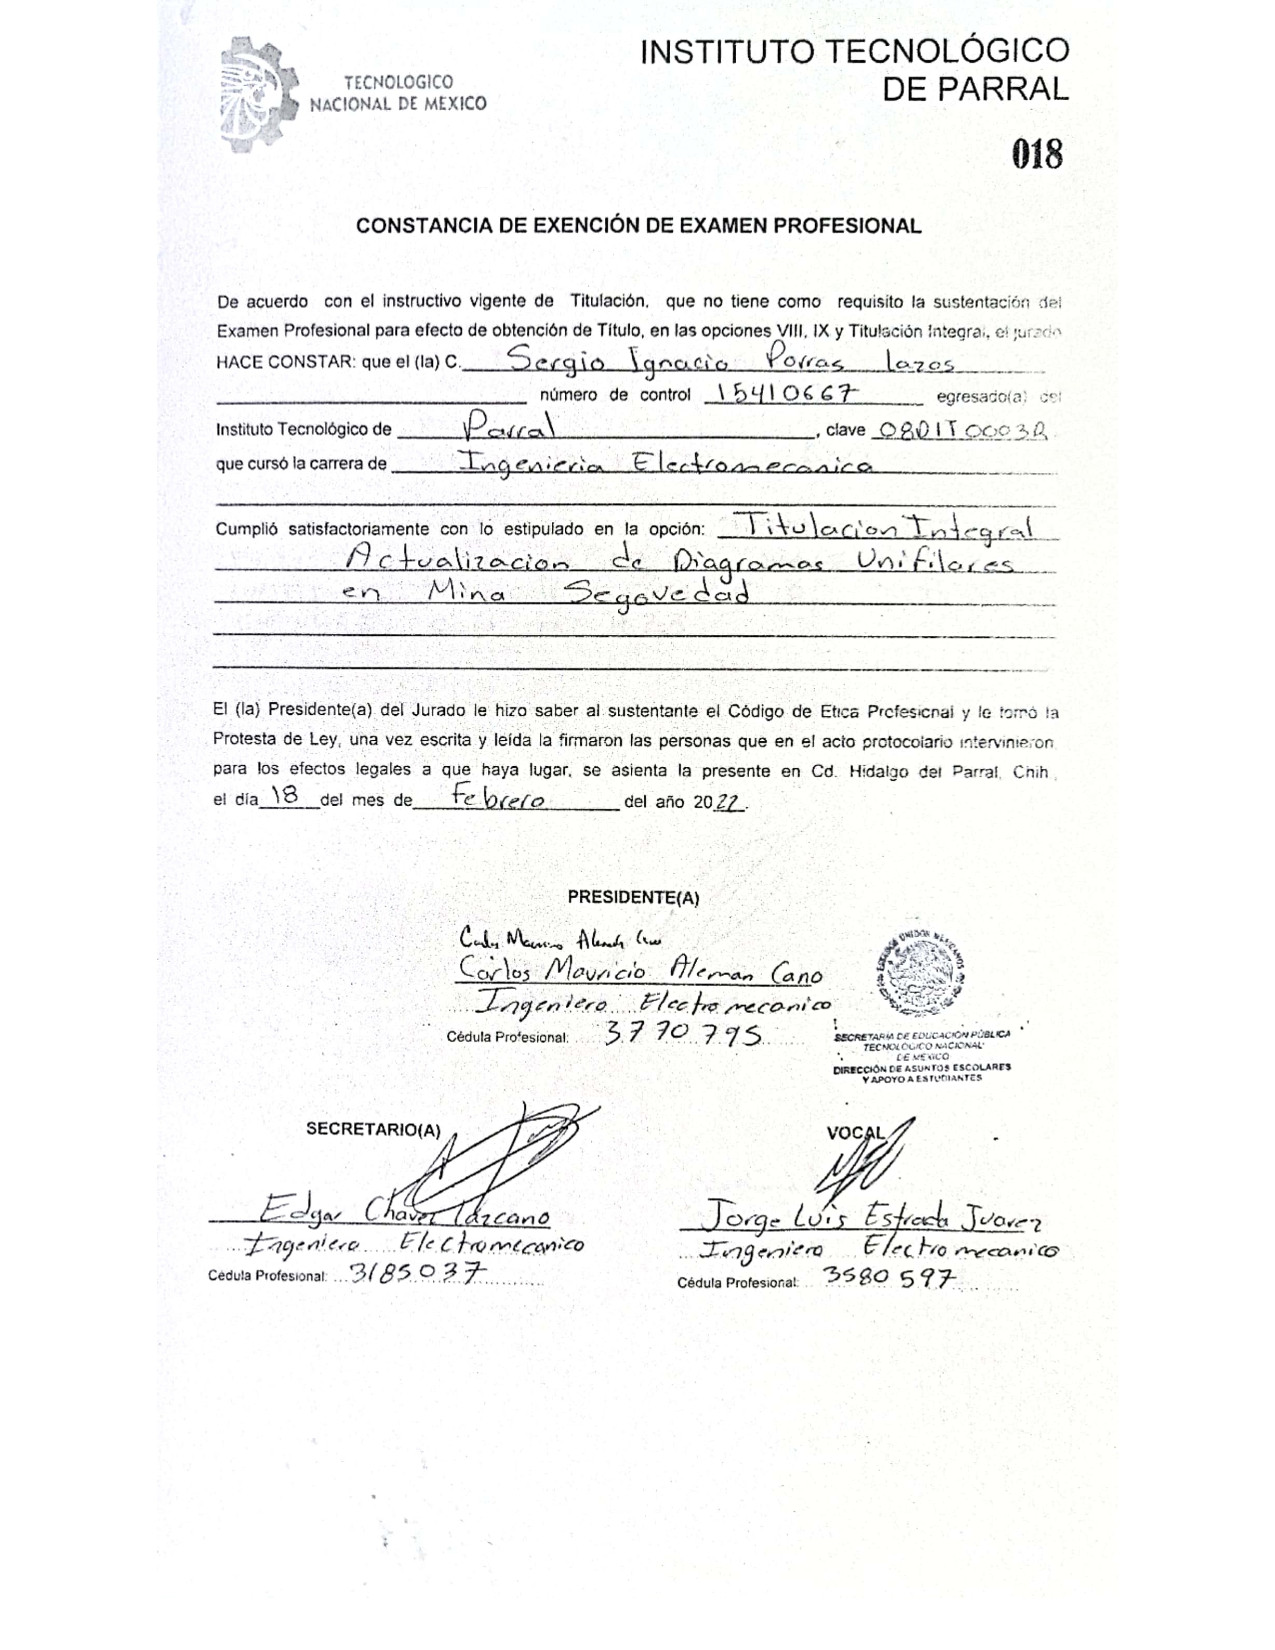 TECNOLOGICO
NACIONAL DE MEXICO
INSTITUTO TECNOLÓGICO
DE PARRAL
018
CONSTANCIA DE EXENCIÓN DE EXAMEN PROFESIONAL
De acuerdo con el instructivo vigente de Titulación, que no tiene como requisito la sustentación del
Examen Profesional para efecto de obtención de Título, en las opciones VIII, IX y Titulación Integral, el jurado
HACE CONSTAR: que el (la) C. Sergio Ignacio Porras Lazos
número de control 15410667 egresado(a) del
Instituto Tecnológico de Parral, clave
que cursó la carrera de Ingenieria Electromecanica
Cumplió satisfactoriamente con lo estipulado en la opción: Titulacion Integral
Actualizacion de Diagramas Unifilares
en Mina Segovedad
El (la) Presidente(a) del Jurado le hizo saber al sustentante el Código de Etica Profesional y le tomó la
Protesta de Ley, una vez escrita y leída la firmaron las personas que en el acto protocolario intervinieron
para los efectos legales a que haya lugar, se asienta la presente en Cd. Hidalgo del Parral, Chih.
el día 18 del mes de Febrero del año 2022.
PRESIDENTE(A)
Carlos Mauricio Aleman Cano
Ingeniero Electromecanico
Cédula Profesional: 3770795
UNIDOS MEXICANOS
SECRETARIA DE EDUCACIÓN PÚBLICA
TECNOLOGICO NACIONAL
DE MEXICO
DIRECCIÓN DE ASUNTOS ESCOLARES
Y APOYO A ESTUDIANTES
SECRETARIO(A)
Edgar Chavez Lazcano
Ingeniero Electromecanico
Cedula Profesional: 3185037
VOCAL
Jorge Luis Estrada Juarez
Ingeniero Electromecanico
Cédula Profesional: 3580597